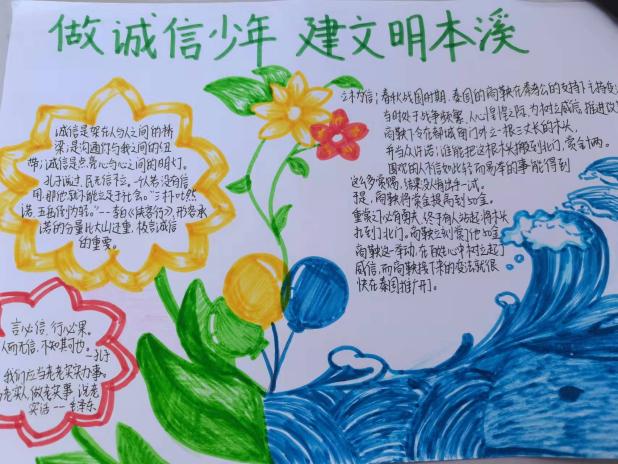 做诚信少年 建文明本溪
诚信是架在人与人之间的桥
梁;是沟通你与我之间的纽
带;诚信是点亮心与心之间的明灯。
孔子说过,民无信不立。一个人若没有信
用,那他就不能立足于社会。“三杯吐然
诺,五岳倒为轻。”--李白《侠客行》,形容承
诺的分量比大山还重,极言诚信
的重要。
言必信,行必果。
人而无信,不知其可也。--孔子
我们应当老老实实办事。
老实人,做老实事,说老
实话--毛泽东
立木为信;春秋战国时期,秦国的商鞅在秦孝公的支持下主持变
当时处于战争频繁、人心惶惶之际,为树立威信,推进改
商鞅下令在都城南门外立一根三丈长的木头,
并当众许诺;谁能把这根木头搬到北门,赏金十两。
围观的人不信如此轻而易举的事能得到
这么多赏赐,结果没人出手一试。
于是,商鞅将赏金提高到50金。
重赏之下必有勇夫,终于有人站起将木头
扛到了北门。商鞅立刻赏了他50金。
商鞅这一举动,在百姓心中树立起了
威信,而商鞅接下来的变法就很
快在秦国推广开了。